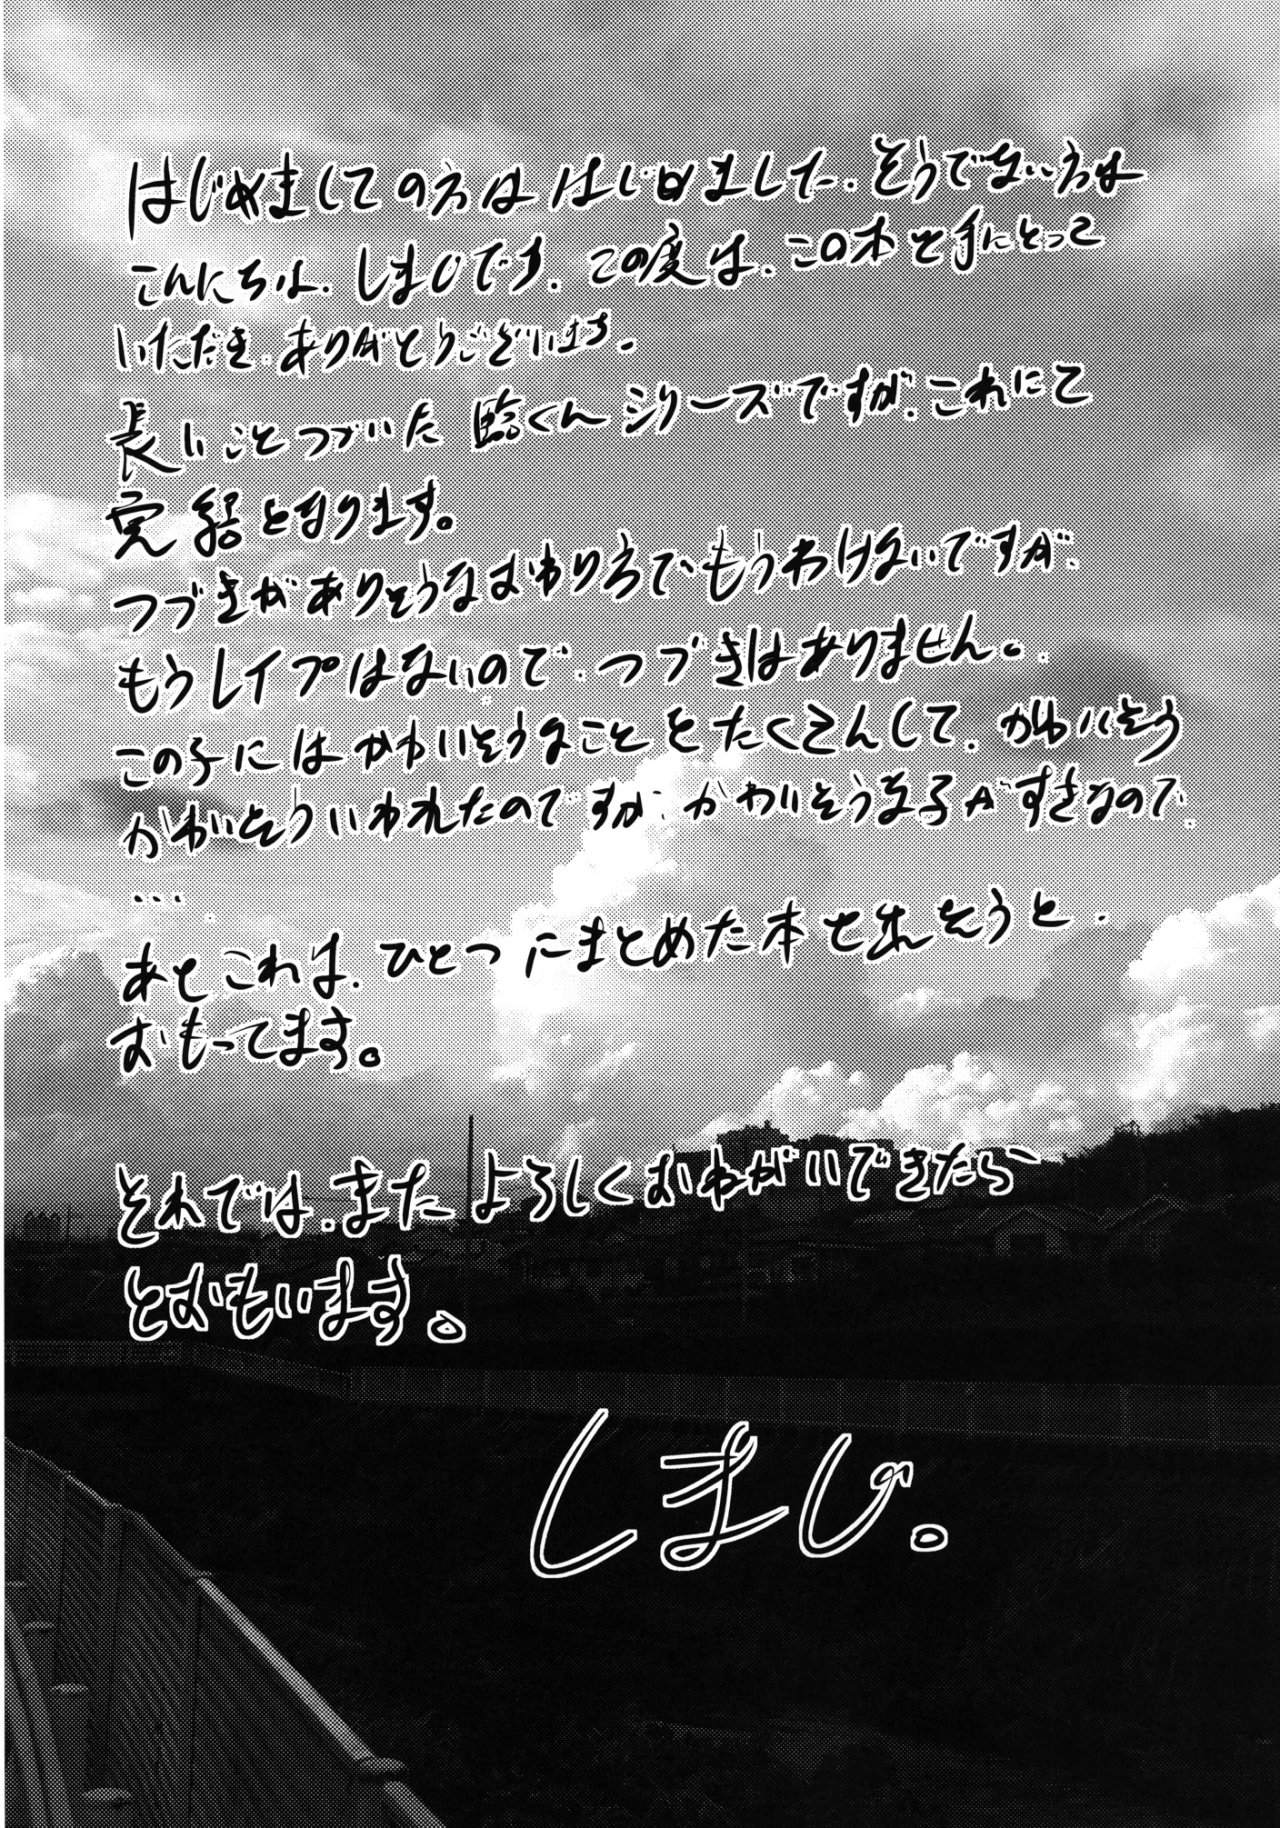 はじめましての方ははじめまして、そうでない方は
こんにちは、しまじです、この度は、この本を手にとって
いただき、ありがとうございます。
長いことつづいた くんシリーズですが、これにて
完結となります。
つづきがありそうなおわり方でもうわけないですが、
もうレイプはないので、つづきはありません。
この子にはかわいそうなことをたくさんして、かわいそう
かわいそういわれたのですが、かわいそうな子がすきなので、
...
あとこれは、ひとつにまとめた本を出そうと、
おもってます。
それでは、またよろしくおねがいできたら
とおもいます。
しまじ。